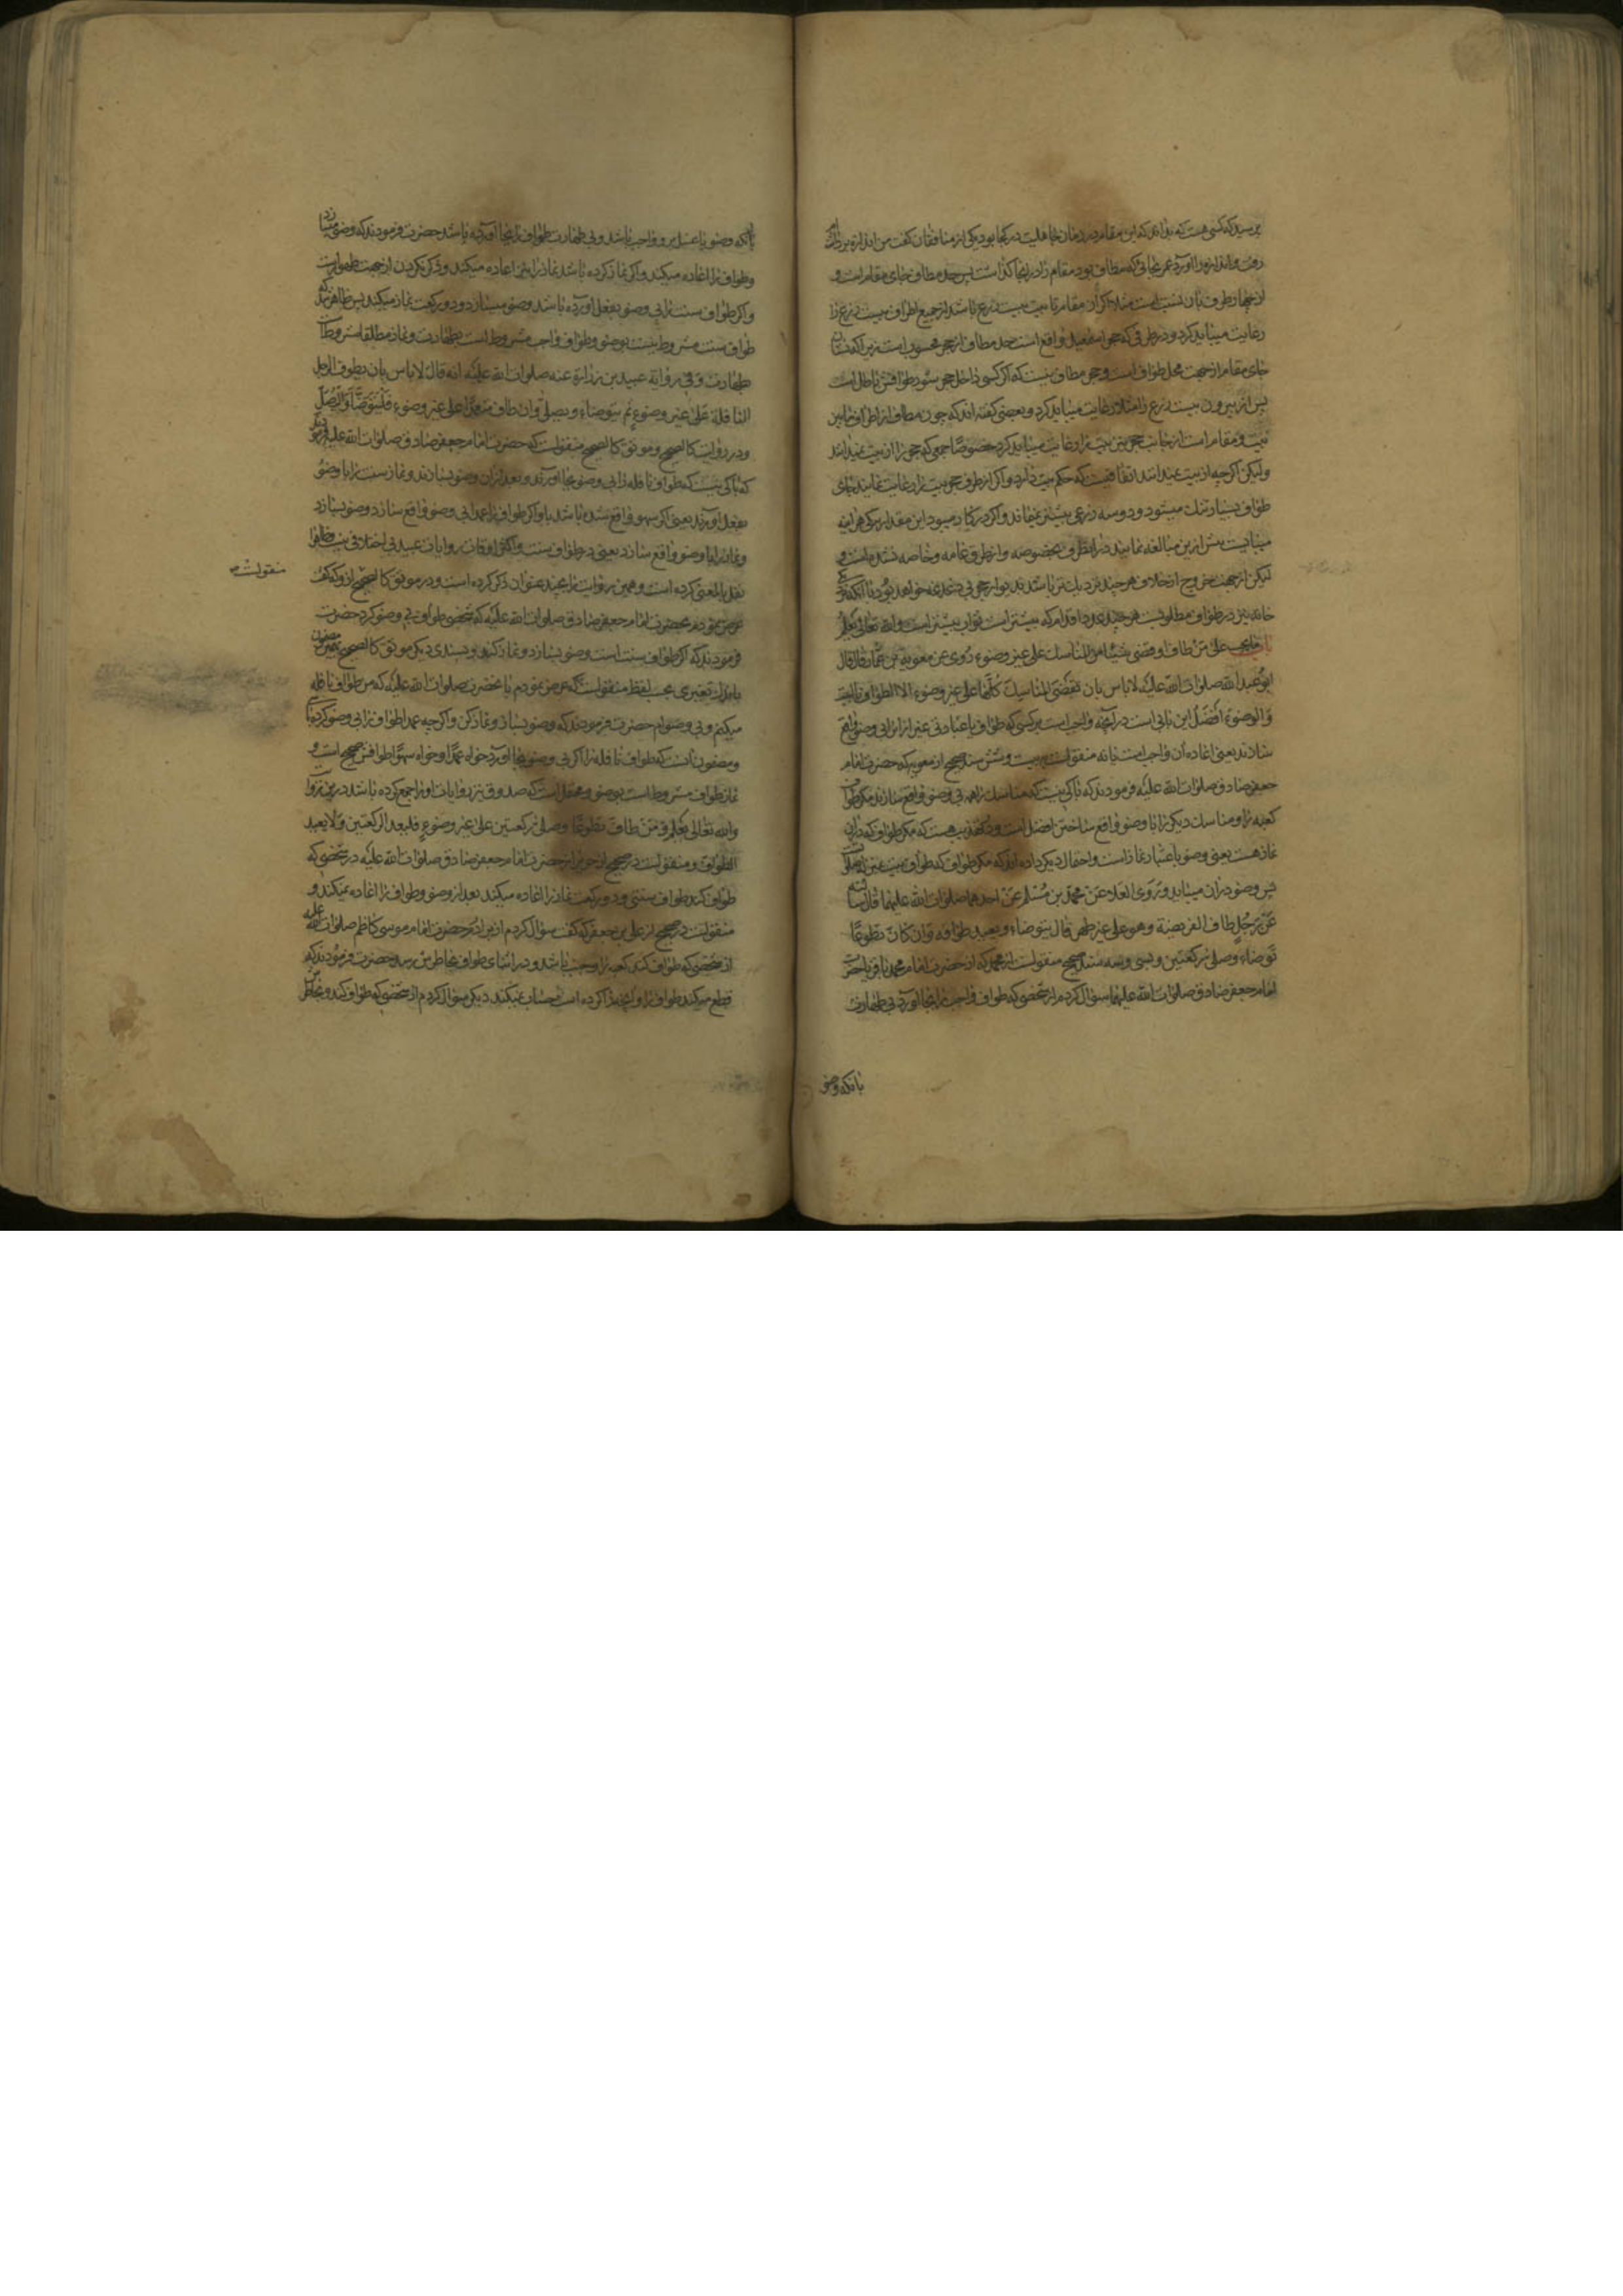 پرسید که کسی هست که بداند که این مقام در زمان جاهلیت در کجا بود یکی از منافقان گفت من اندازه برداشتم
رفت و اندازه را آورد عمر بجائی که مطاف بود مقام را در اینجا گذاشت پس حد مطاف جای مقام است و
از چهار طرف بآن نسبت است مثلا اگر از مقام تا بیت بیست ذرع باشد از جمیع اطراف بیست ذرع را
رعایت میباید کرد و در طرفی که حجر اسمعیل واقع است حد مطاف از حجر محسوب است زیرا که
جای مقام از جهت محل طواف است و حجر مطاف نیست که اگر کسی داخل حجر شود طوافش باطل است
پس از بیرون بیست ذرع را مثلا رعایت میباید کرد و بعضی گفته اند که چون مطاف از اطراف ما بین
بیت و مقام است از جانب حجر نیز بیت را رعایت میباید کرد خصوصا جمعی که حجر را از بیت نمیدانند
ولیکن اگر چه از بیت نمیدانند اتفاقیست که حکم بیت دارد و اگر از طرف حجر بیت را رعایت نمایند جای
طواف بسیار تنک میشود و دو سه ذرعی بیشتر نمیماند و اگر در کار میبود این مقدار هر آینه
میبایست بیش ازین مبالغه نمایند در این طرف بخصوصه و از طرق عامه و خاصه نشده است و
لیکن از جهت خروج از خلاف هر چند نزدیک تر باشد بدیوار حجر بی دغدغه خواهد بود با آنکه
خانه نیز در طواف مطلوبست هر چند عدد اقدام که بیشتر است ثواب بیشتر است والله تعالی یعلم
باب ما یجب علی من طاف او قضی شیئا من المناسک علی غیر وضوء روی عن معویة بن عمار قال قال
ابو عبد الله صلوات الله علیه لا باس بان تقضی المناسک کلها علی غیر وضوء الا الطواف بالبیت
و الوضوء افضل این بابی است در آنچه واجب است بر کسی که طواف یا عبادتی غیر از آن را بی وضو واقع
سازند یعنی اعاده آن واجب است یا نه منقولست به بیست و شش سند صحیح از معویه که حضرت امام
جعفر صادق صلوات الله علیه فرمودند که باکی نیست که مناسک را همه بی وضو واقع سازند مکر طواف
کعبه را و مناسک دیکر را با وضو واقع ساختن افضل است و در تهذیب هست که مکر طواف که در آن
نماز هست یعنی وضو باعتبار نماز است و احتمال دیکر داده اند که مکر طواف که طواف بیت
پس وضو در آن میباید و روی العلاء عن محمد بن مسلم عن احدهما صلوات الله علیهما قال سالته
عن رجل طاف الفریضة و هو علی غیر طهر قال یتوضاء و یعید طوافه و ان کان تطوعا
توضاء و صلی رکعتین و بسی و سه سند صحیح منقولست از محمد که از حضرت امام محمد باقر یا حضرت
امام جعفر صادق صلوات الله علیهما سؤال کردم از شخصی که طواف واجب را بجا آورد بی طهارت
بانکه وضو
بانکه وضو یا غسل بر او واجب باشد و بی طهارت طواف را بجا آورده باشد حضرت فرمودند که وضو میسازد
و طواف را اعاده میکند و اگر نماز کرده باشد نماز را نیز اعاده میکند و ذکر نکردن از جهت ظهور است
و اگر طواف سنت را بی وضو بفعل آورده باشد وضو میسازد و دو رکعت نماز میکند پس ظاهر شد که
طواف سنت مشروط نیست بوضو و طواف واجب مشروط است بطهارت و نماز مطلقا مشروط است
بطهارت و فی روایة عبید بن زرارة عنه صلوات الله علیه انه قال لا باس بان یطوف الرجل
النافلة علی غیر وضوء ثم یتوضاء و یصلی و ان طاف متعمدا علی غیر وضوء فلیتوضأ و لیصل
و در روایت کالصحیح و موثق کالصحیح منقولست که حضرت امام جعفر صادق صلوات الله علیه فرمودند
که باکی نیست که طواف نافله را بی وضو بجا آورند و بعد از آن وضو بسازند و نماز سنت را با وضو
بفعل آورند یعنی اگر سهو واقع شده باشد یا و اگر طواف را عمدا بی وضو واقع سازد وضو بسازد
و نماز را با وضو واقع سازد یعنی در طواف سنت و اکثر اوقات روایات عبید بی اختلافی نیست و ظاهرا
نقل بالمعنی کرده است و همین روایت را بچند عنوان ذکر کرده است و در موثق کالصحیح ازو که گفت
منقولست
عرض نمودم بحضرت امام جعفر صادق صلوات الله علیه که شخصی طواف بی وضو کرد حضرت
فرمودند که اگر طواف سنت است وضو بسازد و نماز کند و بسندی دیکر موثق کالصحیح مضمون
باندک تغییری بحسب لفظ منقولست که عرض نمودم بآنحضرت صلوات الله علیه که من طواف نافله
میکنم و بی وضوام حضرت فرمودند که وضو بساز و نماز کن و اگر چه عمدا طواف را بی وضو کرده باشی
و مضمون آنست که طواف نافله را اگر بی وضو بجا آورد خواه عمدا و خواه سهوا طوافش صحیح است و
نماز طواف مشروط است بوضو و محتمل است که صدوق نیز روایات او را جمع کرده باشد درین روایت
والله تعالی یعلم و من طاف تطوعا وصلی رکعتین علی غیر وضوء فلیعد الرکعتین و لا یعید
الطواف و منقولست در صحیح از حریز از حضرت امام جعفر صادق صلوات الله علیه در شخصی که
طواف کند طواف سنتی و دو رکعت نماز را اعاده میکند بعد از وضو و طواف را اعاده نمیکند و
منقولست در صحیح از علی بن جعفر که گفت سؤال کردم از برادرم حضرت امام موسی کاظم صلوات الله علیه
از شخصی که طواف کند کعبه را و جنب باشد و در اثنای طواف بخاطرش رسد حضرت فرمودند که
قطع میکند طواف را و آنچه را کرده است حساب نمیکند دیکر سؤال کردم از شخصی که طواف کند و بخاطرش